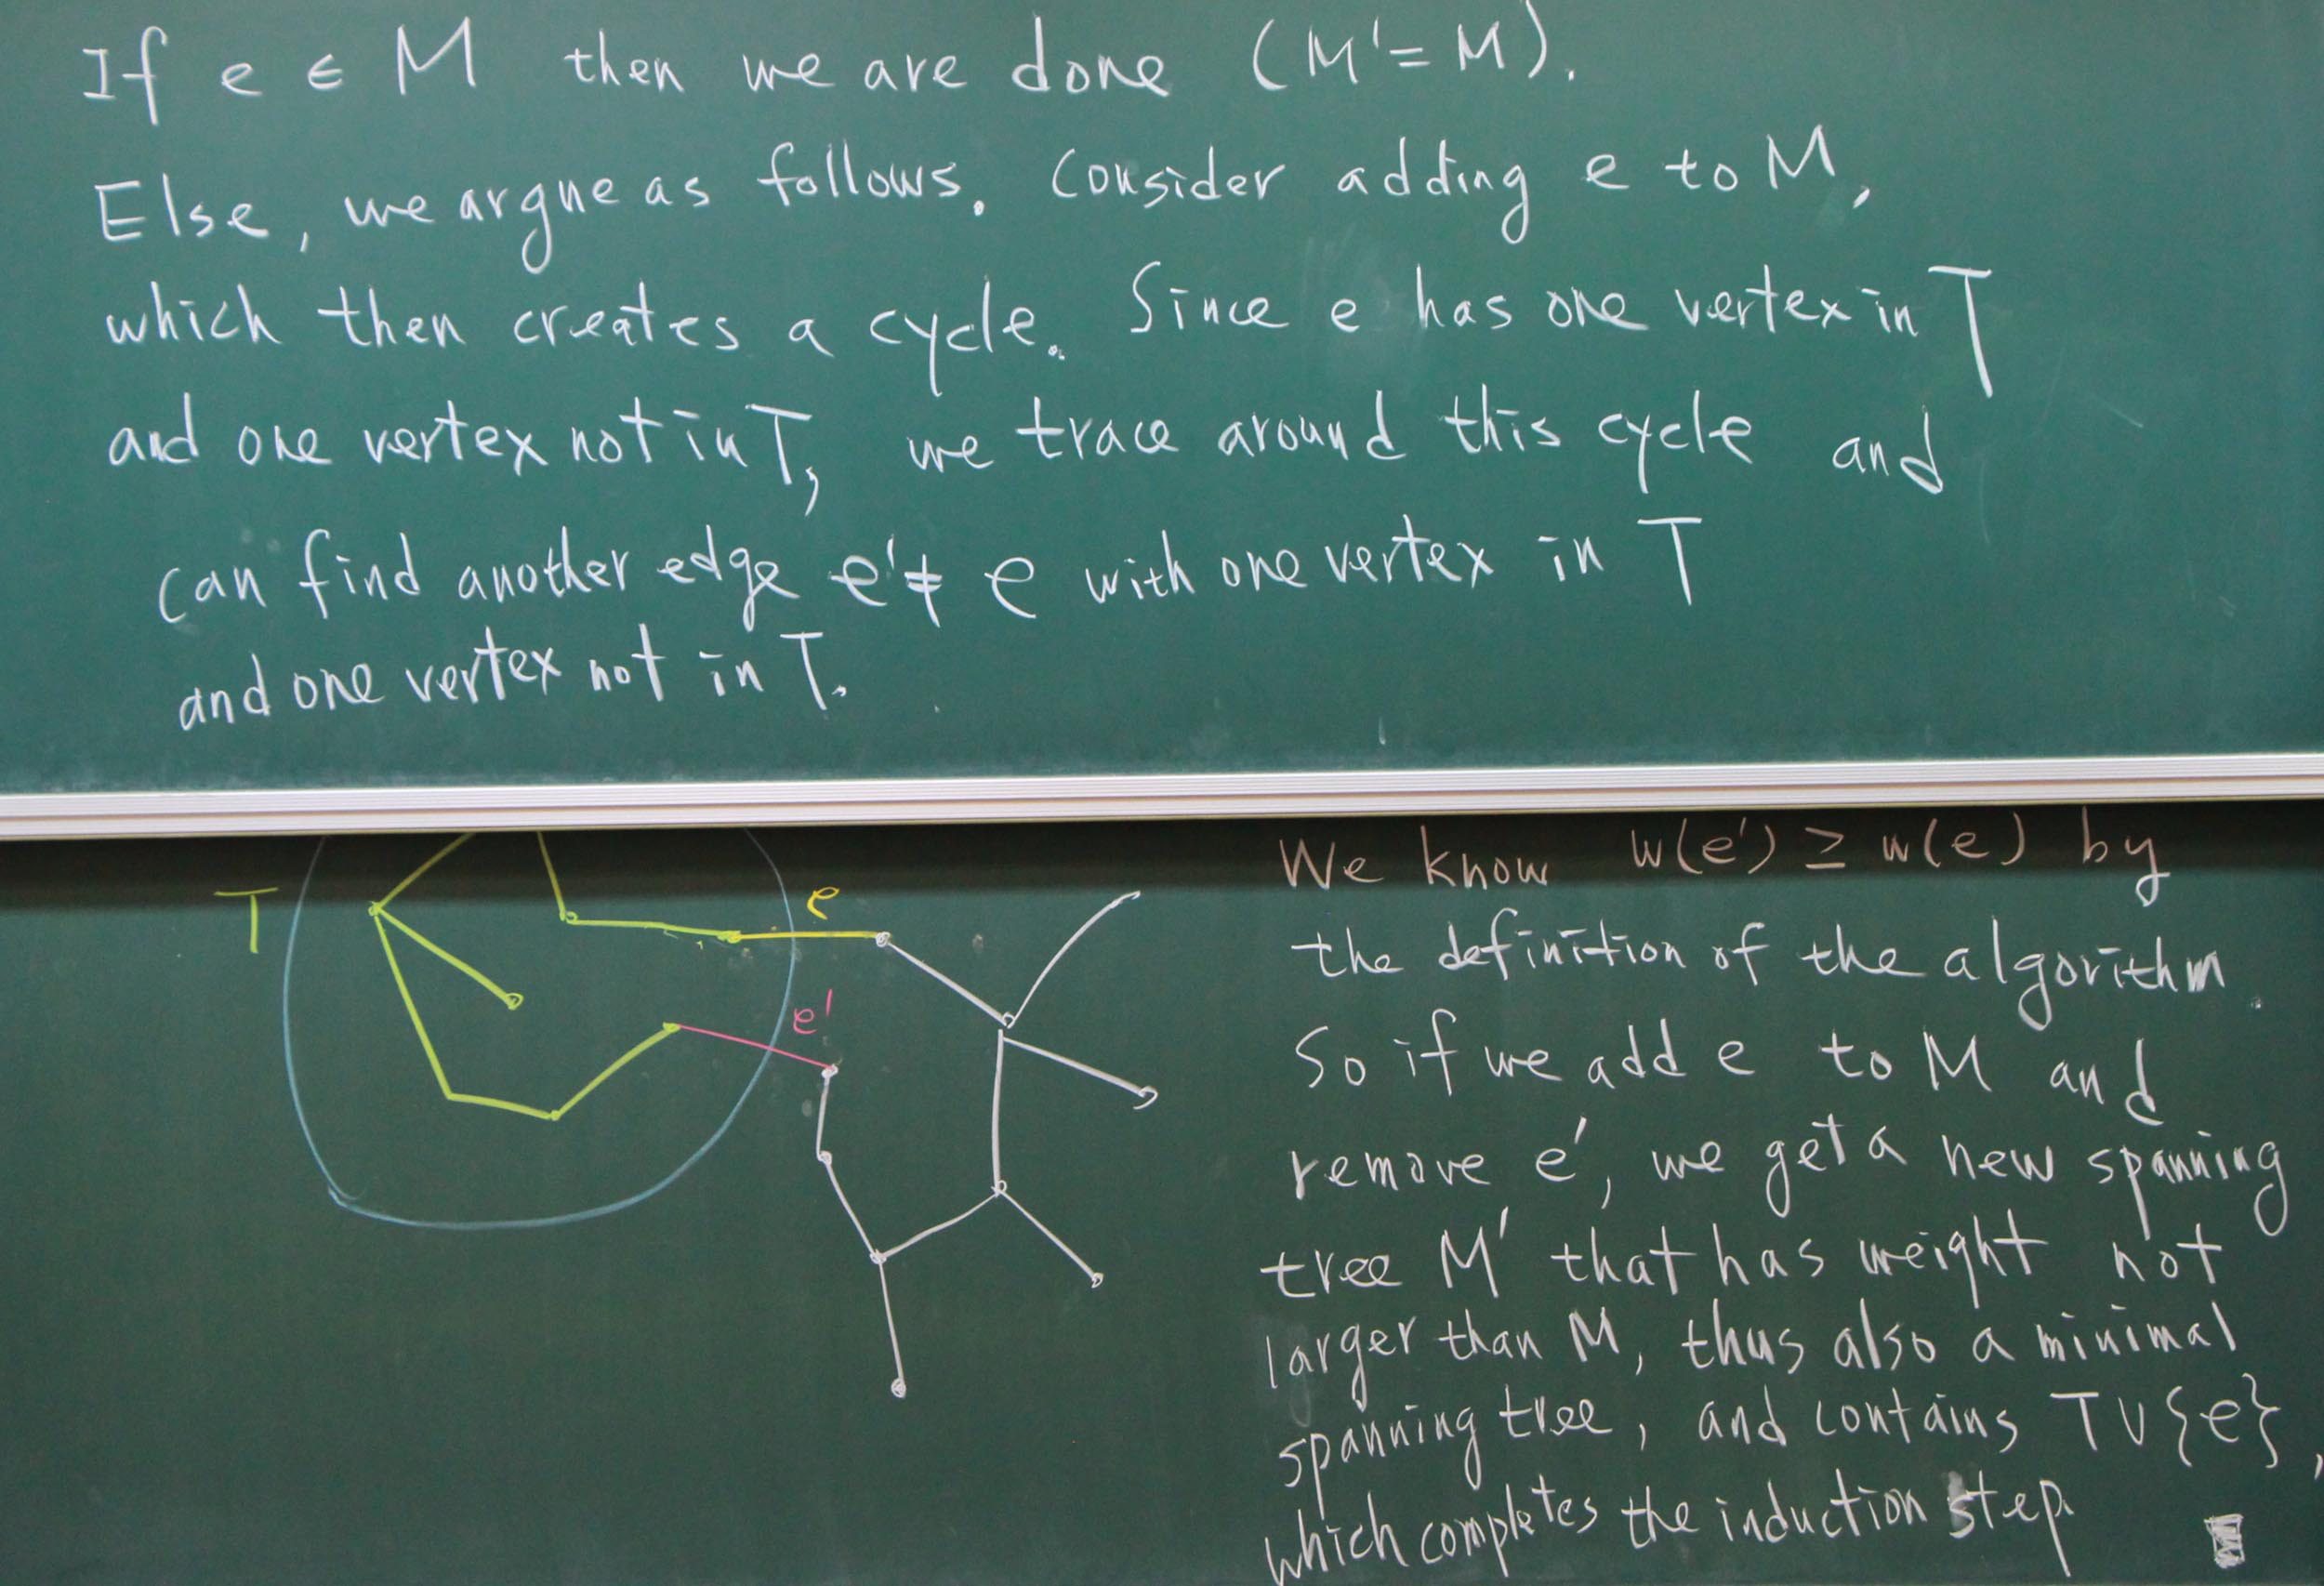 If e ∈ M then we are done (M'= M).
Else, we argue as follows. Consider adding e to M,
which then creates a cycle. Since e has one vertex in T
and one vertex not in T, we trace around this cycle and
can find another edge e' ≠ e with one vertex in T
and one vertex not in T.
T
e
e'
We know w(e') ≥ w(e) by
the definition of the algorithm.
So if we add e to M and
remove e', we get a new spanning
tree M' that has weight not
larger than M, thus also a minimal
spanning tree, and contains T∪{e},
which completes the induction step.